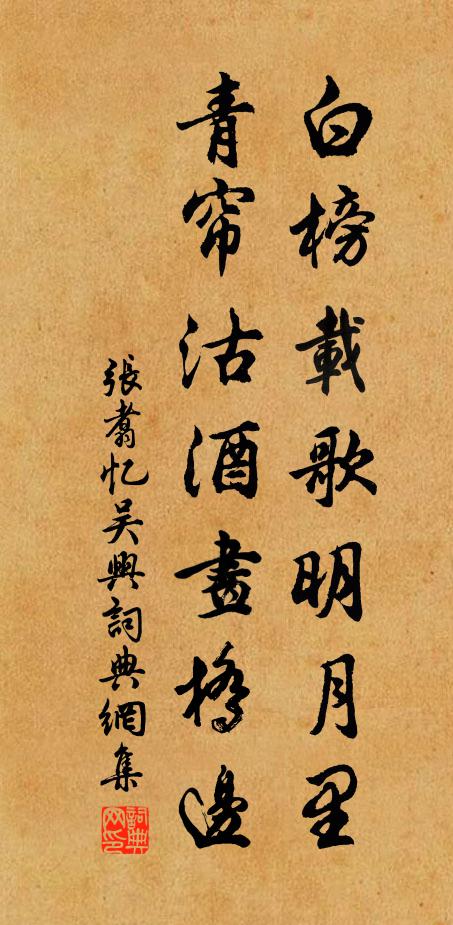 白榜載歌明月里
青帘沽酒畫橋邊
張翥忆吴興詞典網集
詞典网印